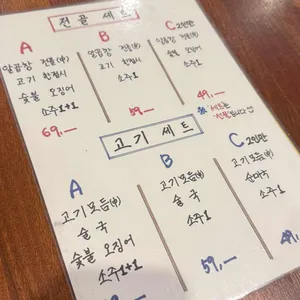 전골 세트
A
알곱창 전골(中)
고기 한접시
숯불 오징어
소주1+1
69,—
B
알곱창 전골(中)
고기 한접시
소주1
59,—
C 2인판
알곱창 전골(中)
숯불 오징어
소주1
49,—
고기 세트
A
고기모듬(中)
술국
숯불 오징어
소주1+1
B
고기모듬(中)
술국
소주1
59,—
C 2인판
고기모듬(中)
순대국
소주1
49,—